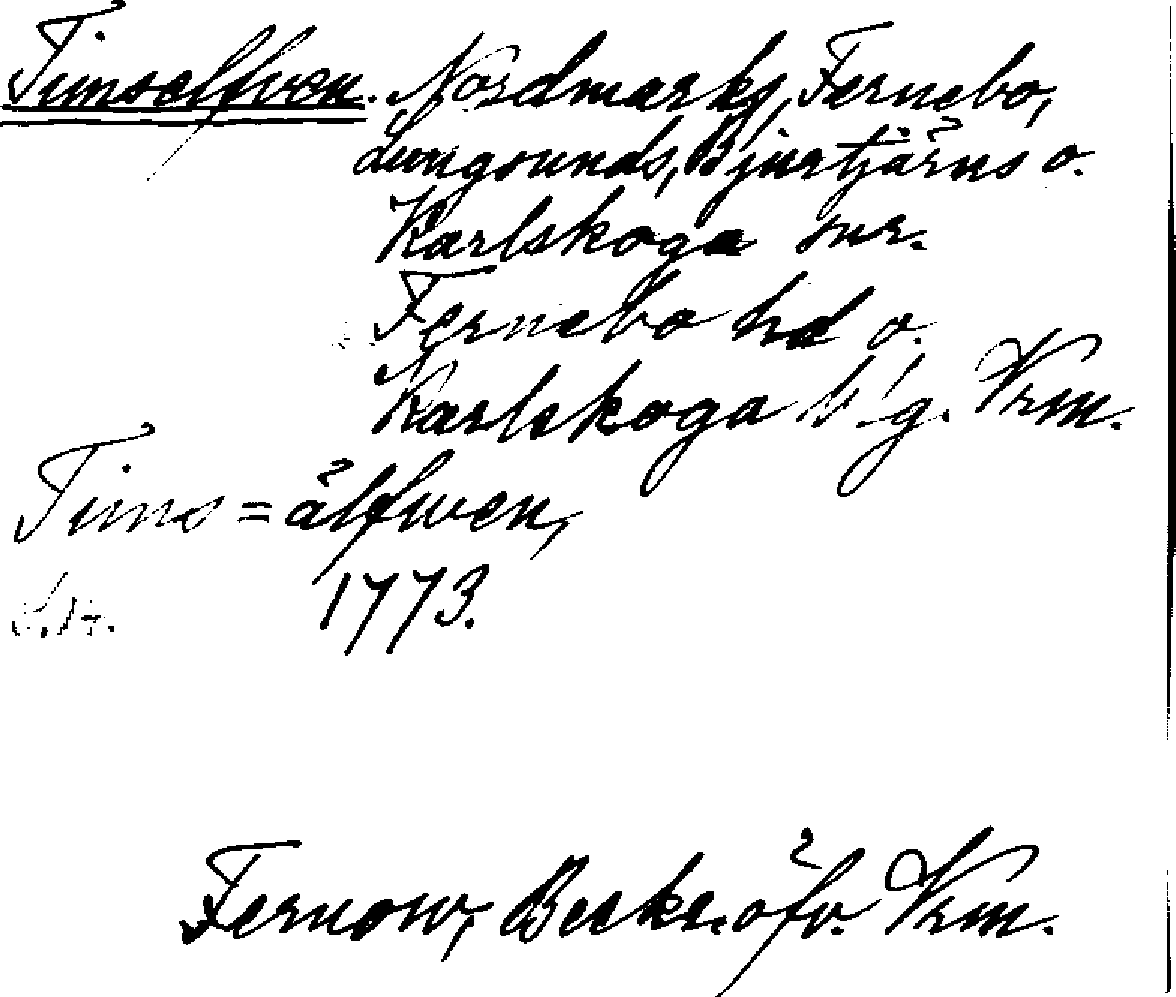 Timselfven. Nordmarks, Fernebo,
Lungsunds, Bjurtjärns o.
Karlskoga snr.
Fernebo hd o.
Karlskoga b'g. Vrm.
Tims=älfwen,
1773.
Fernow, Beskr. öfv. Vrm.